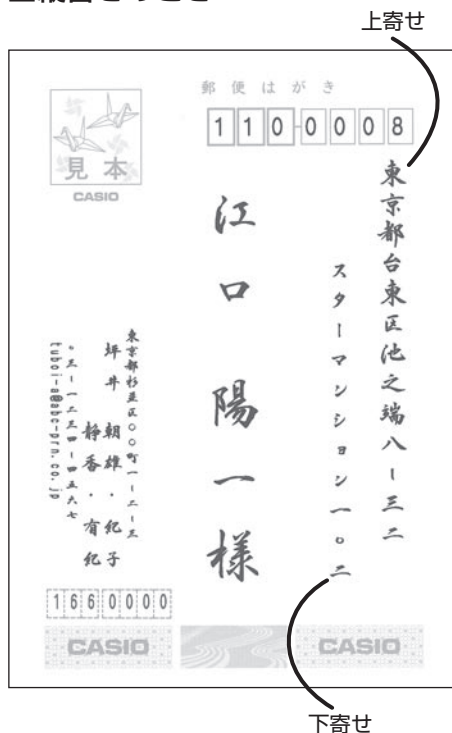 上寄せ
郵便はがき
110-0008
見本
CASIO
東京都台東区池之端八ー三二
スターマンション一〇二
江口 陽一様
東京都杉並区〇〇町一ー二ー三
坪井 朝雄・紀子
静香・有紀
〇三ー一二三四ー四五六七
tuboi-a@abc-prn.co.jp
1660000
CASIO
CASIO
下寄せ